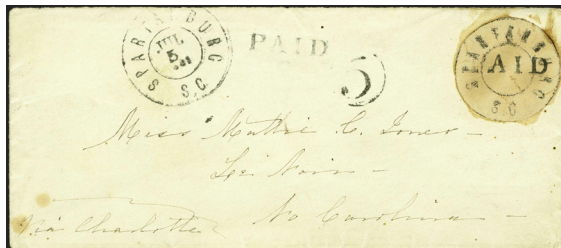 SPARTANBURG S.C.
JUL
5
1861
PAID
5
SPARTANBURG S.C.
PAID
Miss Mattie C. Jones
Le Noir
No Carolina
Via Charlotte